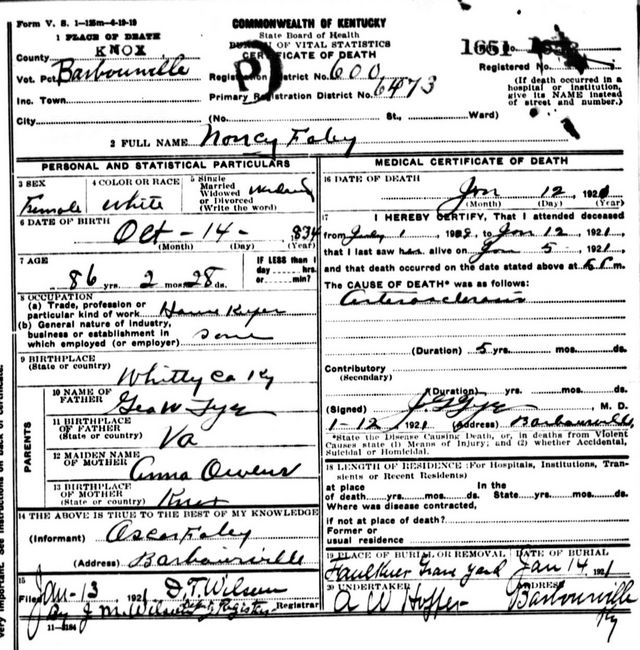 Form V. S. 1—125m—6-19-19
COMMONWEALTH OF KENTUCKY
State Board of Health
BUREAU OF VITAL STATISTICS
CERTIFICATE OF DEATH
1 PLACE OF DEATH
County KNOX
Vot. Pct. Barbourville
Inc. Town
City (No. St., Ward)
Registration District No. 600
Primary Registration District No. 6473
1651
Registered No.
(If death occurred in a hospital or institution, give its NAME instead of street and number.)
2 FULL NAME Nancy Foley
PERSONAL AND STATISTICAL PARTICULARS
3 SEX Female
4 COLOR OR RACE White
5 Single Married Widowed or Divorced (Write the word) Widow
6 DATE OF BIRTH Oct - 14 - 834
(Month) (Day) (Year)
7 AGE 86 yrs. 2 mos. 28 ds.
IF LESS than 1 day hrs. or min.?
8 OCCUPATION
(a) Trade, profession or particular kind of work House Keper
(b) General nature of industry, business or establishment in which employed (or employer) Same
9 BIRTHPLACE
(State or country) Whitly Co Ky
PARENTS
10 NAME OF FATHER Geo W Tye
11 BIRTHPLACE OF FATHER
(State or country) Va
12 MAIDEN NAME OF MOTHER Anna Owens
13 BIRTHPLACE OF MOTHER
(State or country) Knox
14 THE ABOVE IS TRUE TO THE BEST OF MY KNOWLEDGE
(Informant) Oscar Foley
(Address) Barbourville
15
Filed Jan-13 1921 D. T. Wilson
By J M Wilson Registrar
11-3184
MEDICAL CERTIFICATE OF DEATH
16 DATE OF DEATH Jan 12 1921
(Month) (Day) (Year)
17 I HEREBY CERTIFY, That I attended deceased
from July 1 to Jan 12 1921
that I last saw her alive on Jan 5 1921
and that death occurred on the date stated above at m.
The CAUSE OF DEATH* was as follows:
Arteriosclerosis
(Duration) 5 yrs. mos. ds.
Contributory
(Secondary)
(Duration) yrs. mos. ds.
(Signed) Tye, M. D.
1-12 1921 (Address) Barbourville
*State the Disease Causing Death, or, in deaths from Violent Causes state (1) Means of Injury; and (2) whether Accidental, Suicidal or Homicidal.
18 LENGTH OF RESIDENCE (For Hospitals, Institutions, Transients or Recent Residents)
At place of death yrs. mos. ds. In the State yrs. mos. ds.
Where was disease contracted,
if not at place of death?
Former or usual residence
19 PLACE OF BURIAL OR REMOVAL Faulkner Grave Yard
DATE OF BURIAL Jan 14 1921
20 UNDERTAKER A W Hopper
ADDRESS Barbourville Ky